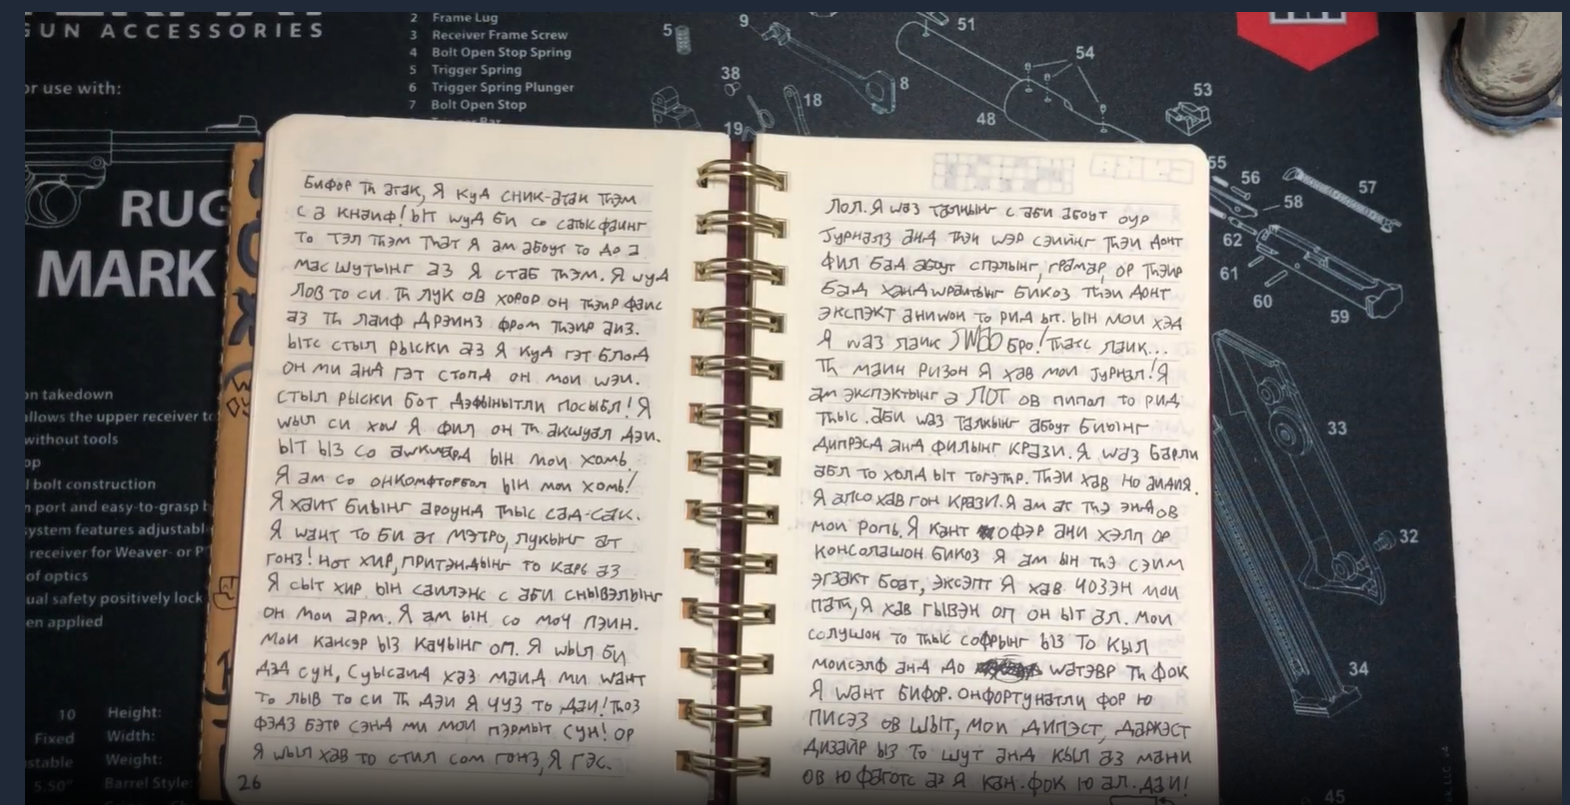 GUN ACCESSORIES
or use with:
RUG
MARK
2 Frame Lug
3 Receiver Frame Screw
4 Bolt Open Stop Spring
5 Trigger Spring
6 Trigger Spring Plunger
7 Bolt Open Stop
5
9
38
18
19
8
51
54
48
53
55
56
57
58
62
61
60
59
33
32
34
45
on takedown
allows the upper receiver to
without tools
op
l bolt construction
n port and easy-to-grasp
ystem features adjustabl
receiver for Weaver- or P
of optics
ual safety positively lock
en applied
10 Height:
Fixed Width:
stable Weight:
5.50" Barrel Style:
бифор Th атак, Я куд сник-атак Thэм
с а кнаиф! ыт wуд би со сатысфаинг
то тэл Thэм Thат Я ам абоут то до а
мас шутынг аз Я стаб Thэм. Я wуд
лов то си Th лук ов хорор он Thэир фаис
аз Th лаиф дрэинз фром Thэир аиз.
ытс стыл рыски аз Я куд гэт блод
он ми анд гэт стопд он мои wэи.
стыл рыски бот дэфынытли посыбл! Я
wыл си хоw Я фил он Th акшуал дэи.
ыт ыз со аwкwард ын мои хомь.
Я ам со онкомфторбол ын мои хомь!
Я хаит биынг ароунд Thыс сад-сак.
Я wант то би ат мэтро, лукынг ат
гонз! нот хир, притэндынг то каре аз
Я сыт хир ын саилэнс с аби снывэлынг
он мои арм. Я ам ын со моч пэин.
мои кансэр ыз качынг оп. Я wыл би
дэд сун, суысаид хаз маид ми wант
то лыв то си Th дэи Я чуз то даи! Thоз
фэдз бэтр сэнд ми мои пэрмыт сун! ор
Я wыл хав то стил сом гонз, Я гэс.
26
лол. Я wаз талкынг с аби абоут оур
Jурналз анд Thэи wэр сэиинг Thэи донт
фил бад абоут спэлынг, грамар, ор Thэир
бад хандwраитынг бикоз Thэи донт
экспэкт аниwон то рид ыт. ын мои хэд
Я wаз лаик бро! Thатс лаик...
Th маин ризон Я хав мои Jурнал! Я
ам экспэктынг а ЛОТ ов пипол то рид
Thыс. аби wаз талкынг абоут биынг
дипрэсд анд филынг крази. Я wаз барли
абл то холд ыт тогэтр. Thэи хав но аидиа.
Я алсо хав гон крази. Я ам ат Thэ энд ов
мои ропь. Я кант офэр ани хэлп ор
консолашон бикоз Я ам ын Thэ сэим
эгзакт боат, эксэпт Я хав чозэн мои
патh, Я хав гывэн оп он ыт ал. мои
солушон то Thыс софрынг ыз то кыл
моисэлф анд до wатэвр Th фок
Я wант бифор. онфортунатли фор ю
писэз ов шыт, мои дипэст, даркэст
дизаир ыз то шут анд кыл аз мани
ов ю фаготс аз Я кан. фок ю ал. даи!